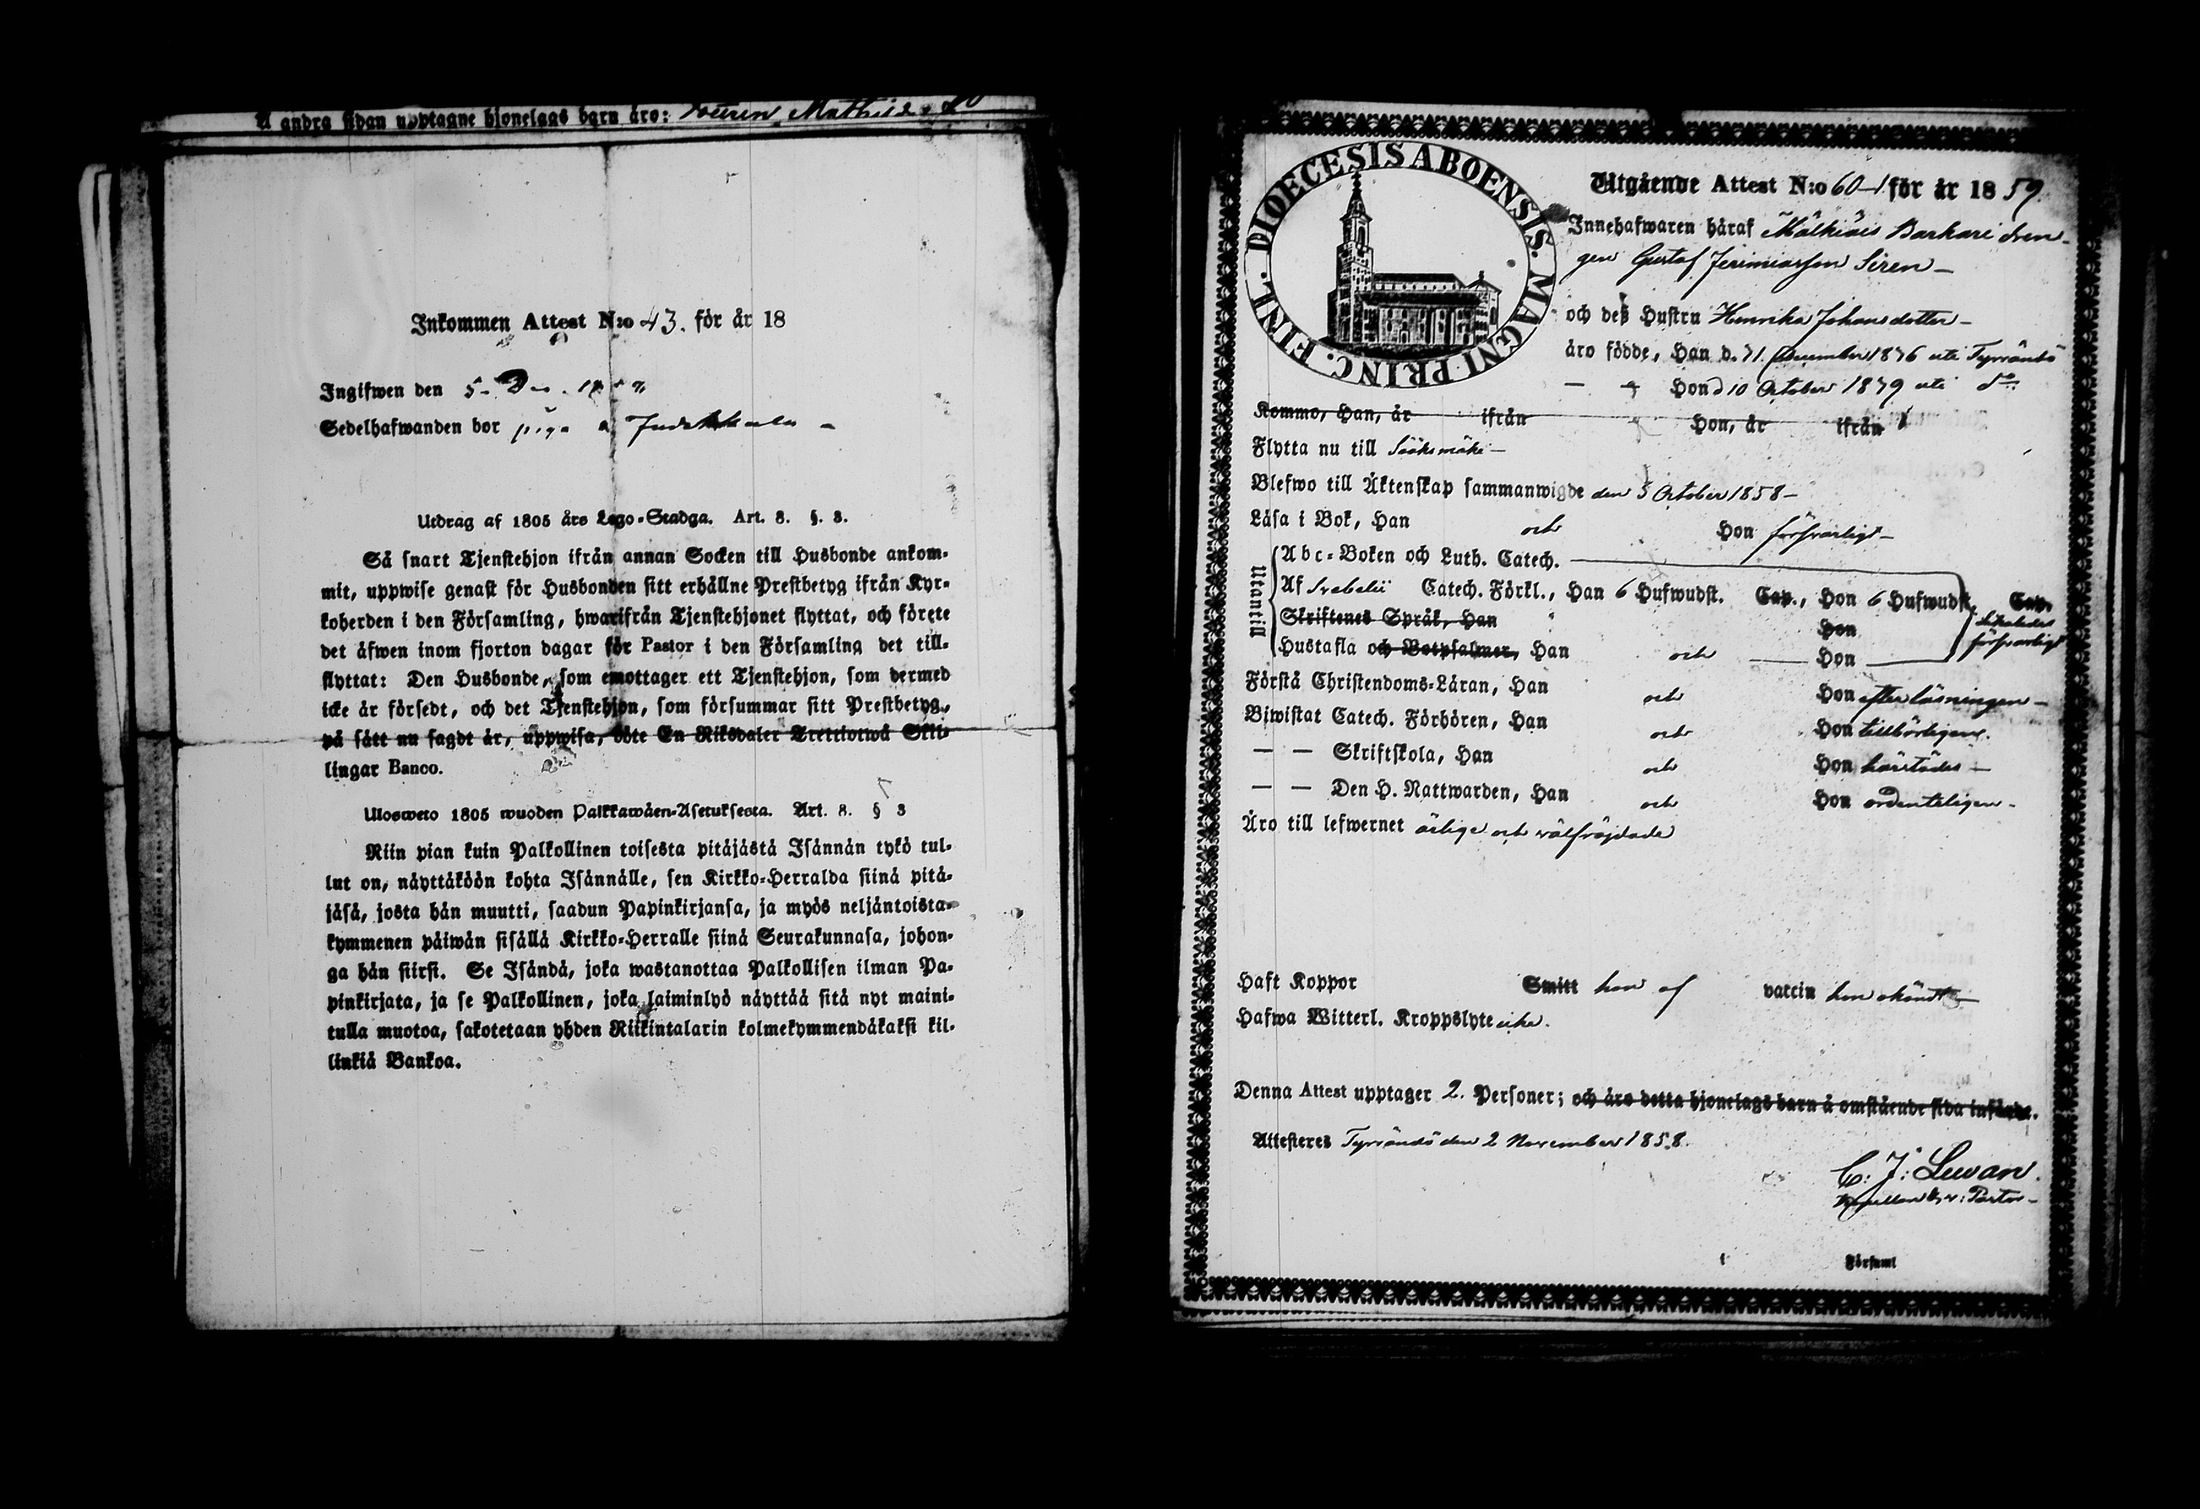 Å andra sidan upptagne hjonelags barn äro:
Inkommen Attest N:o 43. för år 18
Ingifwen den 5
Sedelhafwanden bor piga
Utdrag af 1805 års Lego-Stadga. Art. 8. §. 3.
Så snart Tjenstehjon ifrån annan Socken till Husbonde ankom-
mit, uppwise genast för Husbonden sitt erhållne Prestbetyg ifrån Kyr-
koherden i den Församling, hwarifrån Tjenstehjonet flyttat, och förete
det äfwen inom fjorton dagar för Pastor i den Församling det till-
flyttat: Den Husbonde, som emottager ett Tjenstehjon, som dermed
icke är försedt, och det Tjenstehjon, som försummar sitt Prestbetyg,
på sätt nu sagdt är, uppwisa, böte En Riksdaler Trettiotwå Skil-
lingar Banco.
Ulosweto 1805 wuoden Palkkawäen-Asetuksesta. Art. 8. § 3
Niin pian kuin Palkollinen toisesta pitäjästä Isännän tykö tul-
lut on, näyttäköön kohta Isännälle, sen Kirkko-Herralda siinä pitä-
jäsä, josta hän muutti, saadun Papinkirjansa, ja myös neljäntoista-
kymmenen päiwän sisällä Kirkko-Herralle siinä Seurakunnasa, johon-
ga hän siirsi. Se Isändä, joka wastanottaa Palkollisen ilman Pa-
pinkirjata, ja se Palkollinen, joka laiminlyö näyttää sitä nyt maini-
tulla muotoa, sakotetaan yhden Riikintalarin kolmekymmendäkaksi kil-
linkiä Bankoa.
DIOECESIS ABOENSIS. MAGNI PRINC. FINL.
Utgående Attest N:o 60-1 för år 1859.
Innehafwaren häraf Mälkiäis Barkare dren-
gen Gustaf Jerimiasson Siren-
och deß Hustru Henrika Johansdotter-
äro födde, Han d. 31 December 1836 uti Tyrvändö
— " Hon d 10 October 1839 uti do
Kommo, Han, år ifrån Hon, år ifrån
Flytta nu till Sääksmäki-
Blefwo till Äktenskap sammanwigde den 5 October 1858-
Läsa i Bok, Han och Hon försvarligt-
Utantill
Abc-Boken och Luth. Catech.
Af Svebelii Catech. Förkl., Han 6 Hufwudst. Cap., Hon 6 Hufwudst. Cap.
Skriftenes Språk, Han Hon
försvarligt
Hustafla och Botpsalmer, Han och Hon
Förstå Christendoms-Läran, Han och Hon efter läsningen-
Biwistat Catech. Förhören, Han och Hon tillbörligen.
— — Skriftskola, Han och Hon härstädes-
— — Den H. Nattwarden, Han och Hon ordenteligen-
Äro till lefwernet ärlige och välfrägdade
Haft Koppor Smitt han af vaccin hon okändt-
Hafwa Witterl. Kroppslyte icke.
Denna Attest upptager 2. Personer; och äro detta hjonelags barn å omstående sida införde.
Attesteres Tyrvändö den 2 November 1858.
C: J: Lewan.
Kapellan & v: Pastor-
Församl